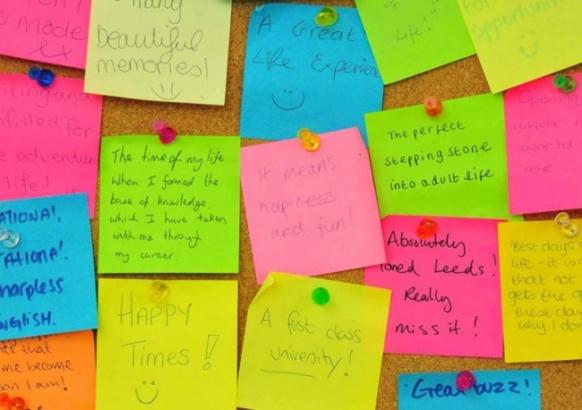 Made
xx
Many
beautiful
memories!
A Great
Life Experien
of
Life!
For
opportuni
and
filled for
adventur
life!
The time of my life
When I formed the
base of knowledge
which I have taken
with me through
my career.
It means
hapiness
and fun!
The perfect
stepping stone
into adult life
Opening
whole
world
me
ATIONAL.
TATIONAL.
harpless
ENGLISH.
Absolutely
loved Leeds!
Really
miss it!
Best days
life - it is
that not
gets the
these day
why I do
ts that
me become
on I am!
HAPPY
Times!
A first class
university!
Great buzz!